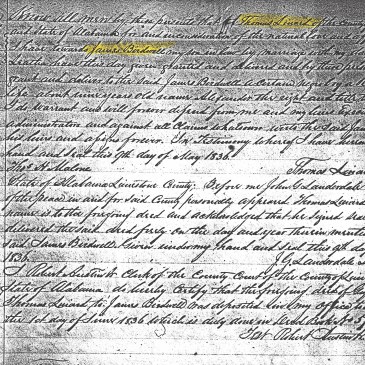 Know all men by these presents that I Thomas Linard of the County
and State of Alabama for and in consideration of the natural love and
I have towards James Birdwell my son in law by marrying with my
have this day given granted and
grant and deliver to the said James Birdwell a certain negro
boy about nine years old name Alexander the right and title
I do warrant and will forever defend from me and my heirs
administrators and against all claims whatsoever unto the said
his heirs and assigns forever. In testimony whereof I have hereun
hand and seal this 9th day of May 1836
Thomas Linard
Thos N Malone
State of Alabama Limestone County. Before me John G Lauderdale
of the peace in and for said County personally appeared Thomas Linard
name is to the foregoing deed and acknowledged that he signed sealed
delivered the said deed freely on the day and year therein mentioned
said James Birdwell. Given under my hand and seal this 9th day
1836. J G Lauderdale
I Robert Austin Clerk of the County Court of the County of
State of Alabama do hereby certify that the foregoing deed of
Thomas Linard to James Birdwell was deposited in my office
the 1st day of June 1836 which is duly done in Deed Book
Test Robert Austin